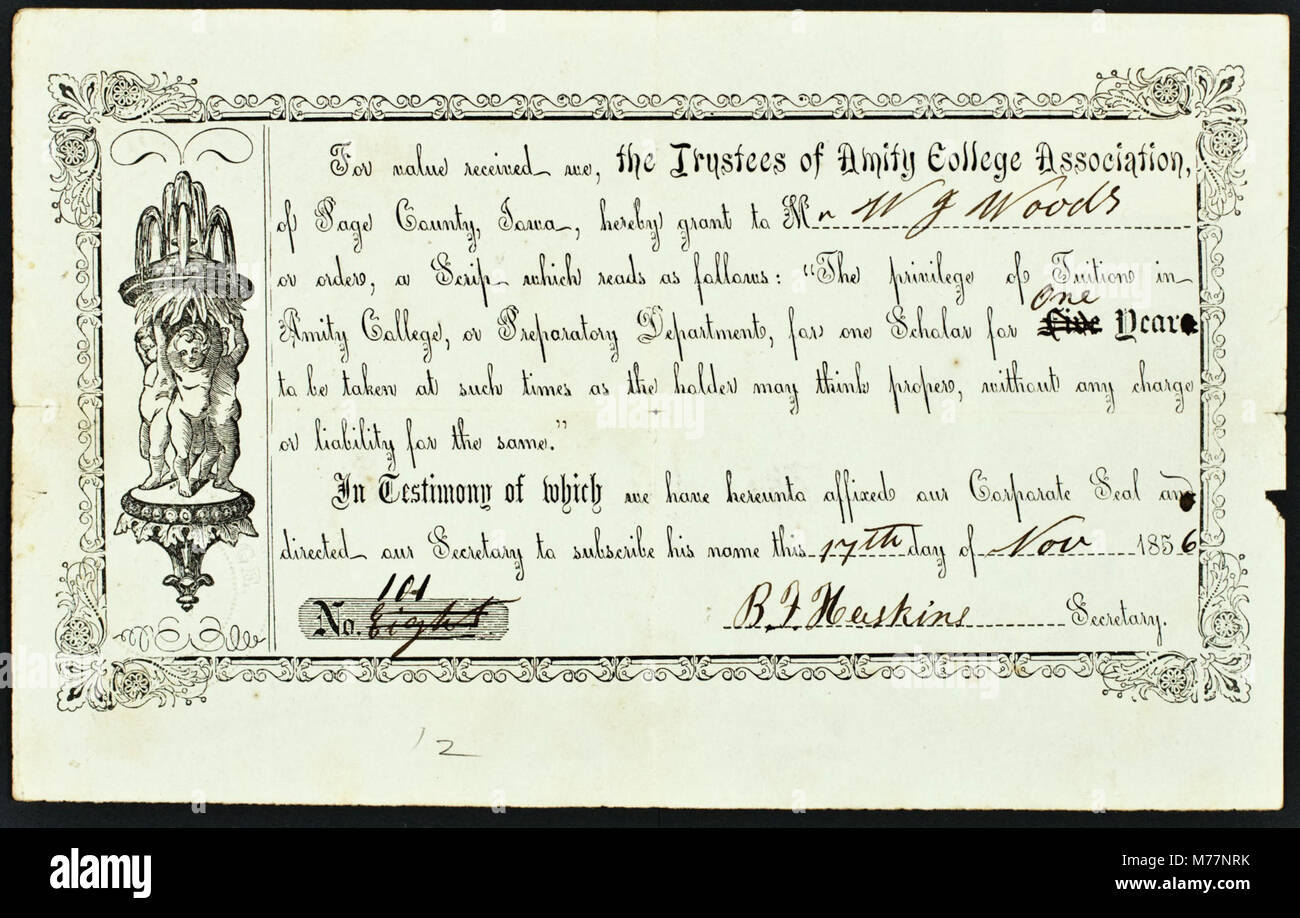 For value received we, the Trustees of Amity College Association,
of Page County, Iowa, hereby grant to Mr W J Woods
or order, a Scrip which reads as follows: "The privilege of Tuition in
Amity College, or Preparatory Department, for one Scholar for Five one Years
to be taken at such times as the holder may think proper, without any charge
or liability for the same."
In Testimony of which we have hereunto affixed our Corporate Seal and
directed our Secretary to subscribe his name this 17th day of Nov 1856
No. Eight 101
B. F. Haskins Secretary.
12
alamy
Image ID: M77NRK
www.alamy.com